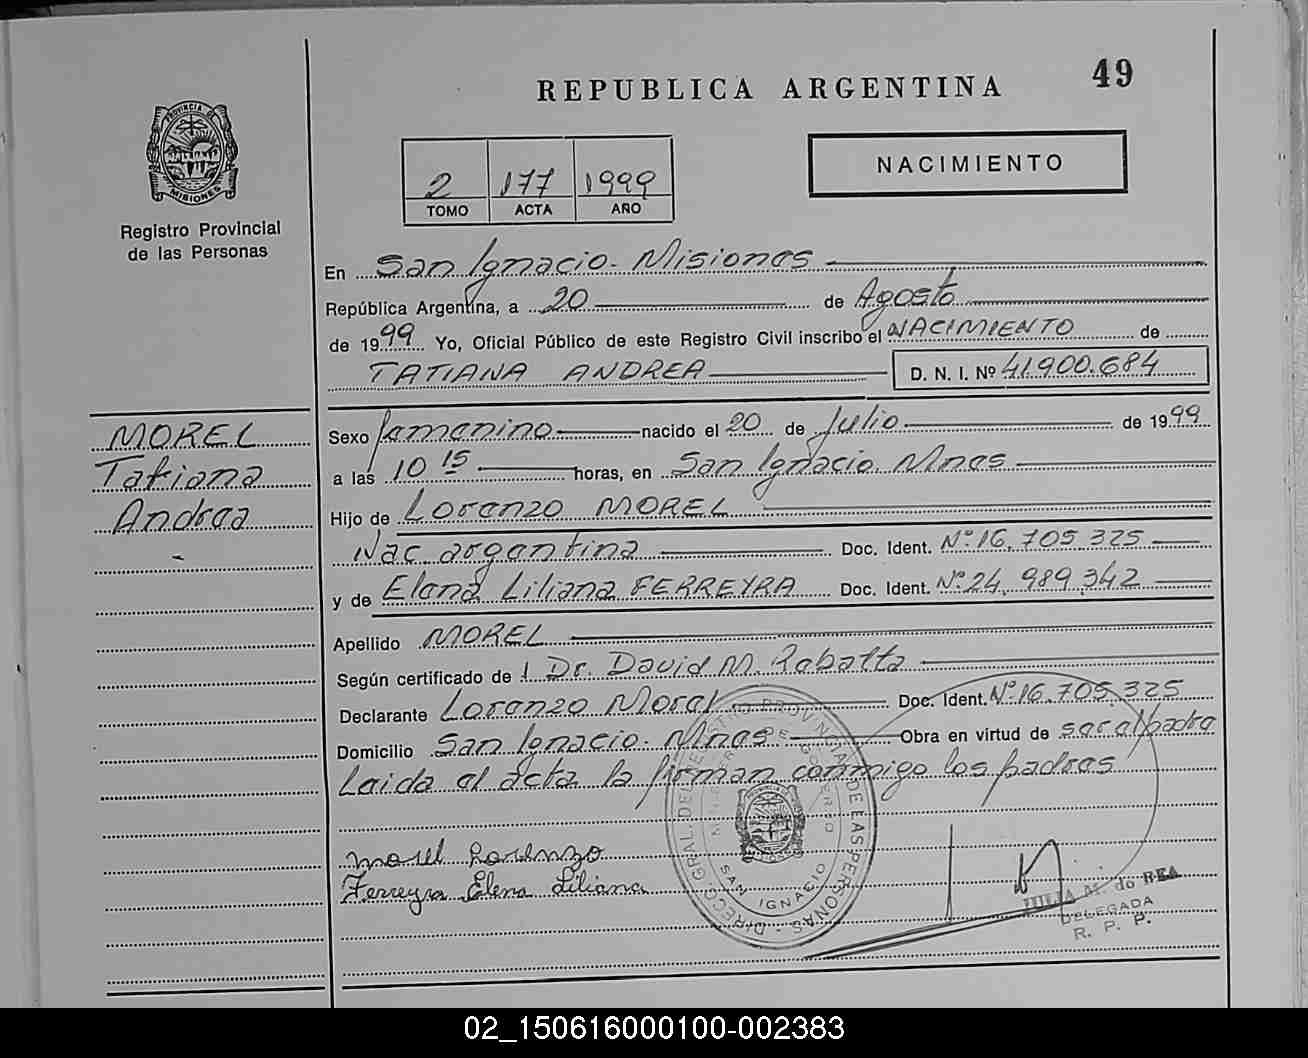 REPUBLICA ARGENTINA
49
PROVINCIA DE
MISIONES
Registro Provincial
de las Personas
2 177 1999
TOMO ACTA AÑO
NACIMIENTO
En San Ignacio - Misiones
República Argentina, a 20 de Agosto
de 1999 Yo, Oficial Público de este Registro Civil inscribo el NACIMIENTO de
TATIANA ANDREA D. N. I. Nº 41.900.684
MOREL
Tatiana
Andrea
Sexo femenino nacido el 20 de Julio de 1999
a las 10 15 horas, en San Ignacio Mnes
Hijo de Lorenzo MOREL
Nac. argentina Doc. Ident. Nº 16.705.325
y de Elena Liliana FERREYRA Doc. Ident. Nº 24.989.342
Apellido MOREL
Según certificado de Dr. David M. Rabatta
Declarante Lorenzo Morel Doc. Ident. Nº 16.705.325
Domicilio San Ignacio - Mnes Obra en virtud de ser el padre
Leida el acta la firman conmigo los padres
Morel Lorenzo
Ferreyra Elena Liliana
DIRECC. GRAL. DEL REGISTRO PROVINCIAL DE LAS PERSONAS
SAN IGNACIO
JULIA M. do REA
DELEGADA
R. P. P.
02_150616000100-002383